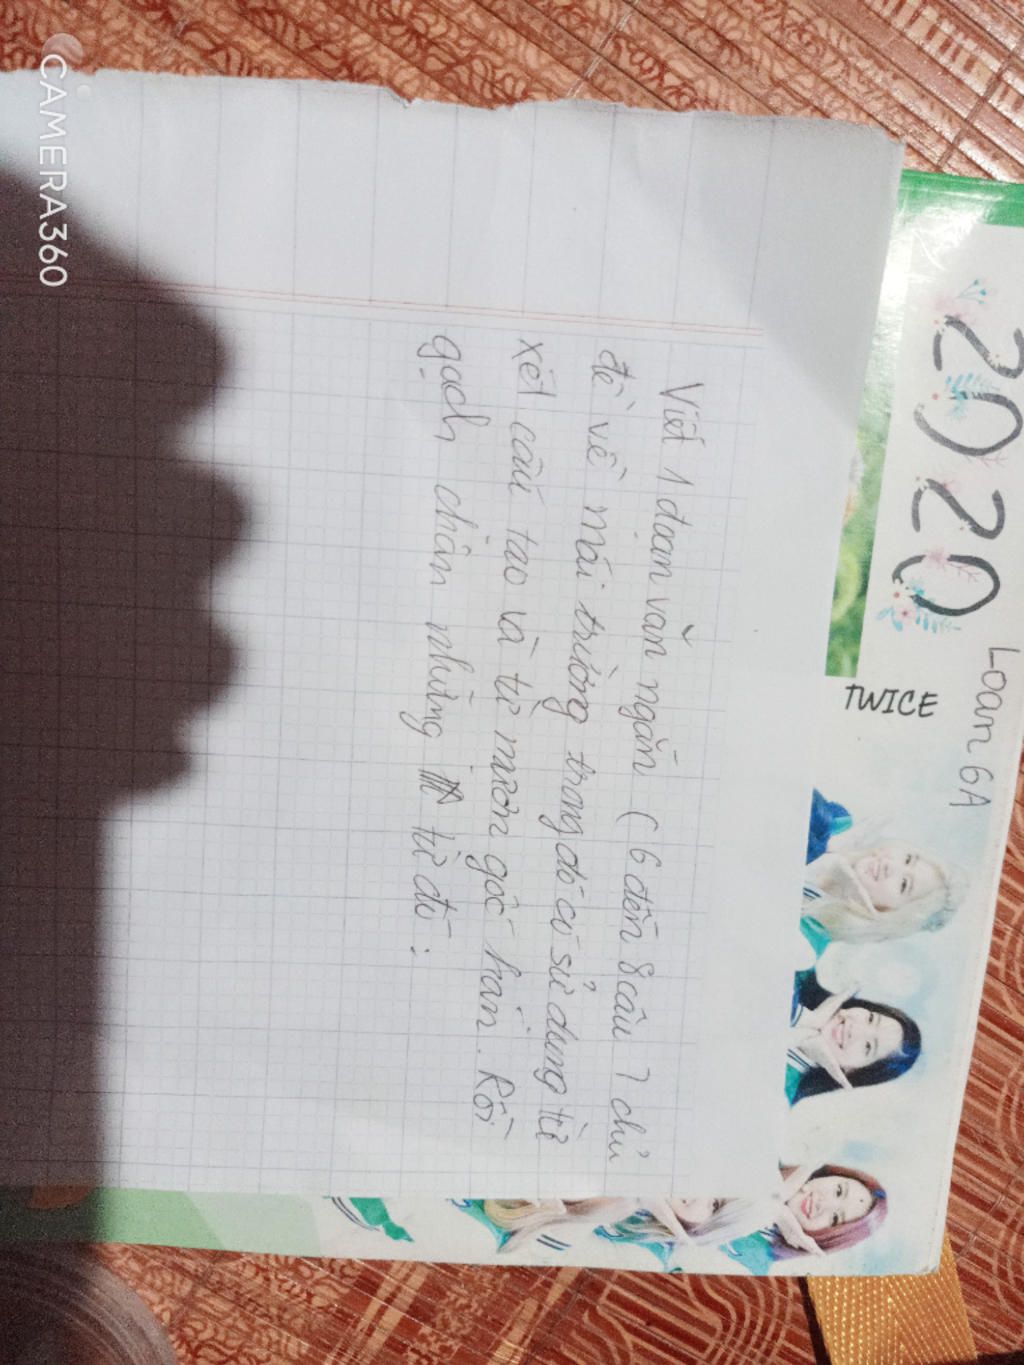 Viết 1 đoạn văn ngắn (6 đến 8 câu) chủ
đề về mái trường trong đó có sử dụng từ
xét cấu tạo và từ mượn gốc hán. Rồi
gạch chân những từ đó:
2020
Loan 6A
TWICE
CAMERA360